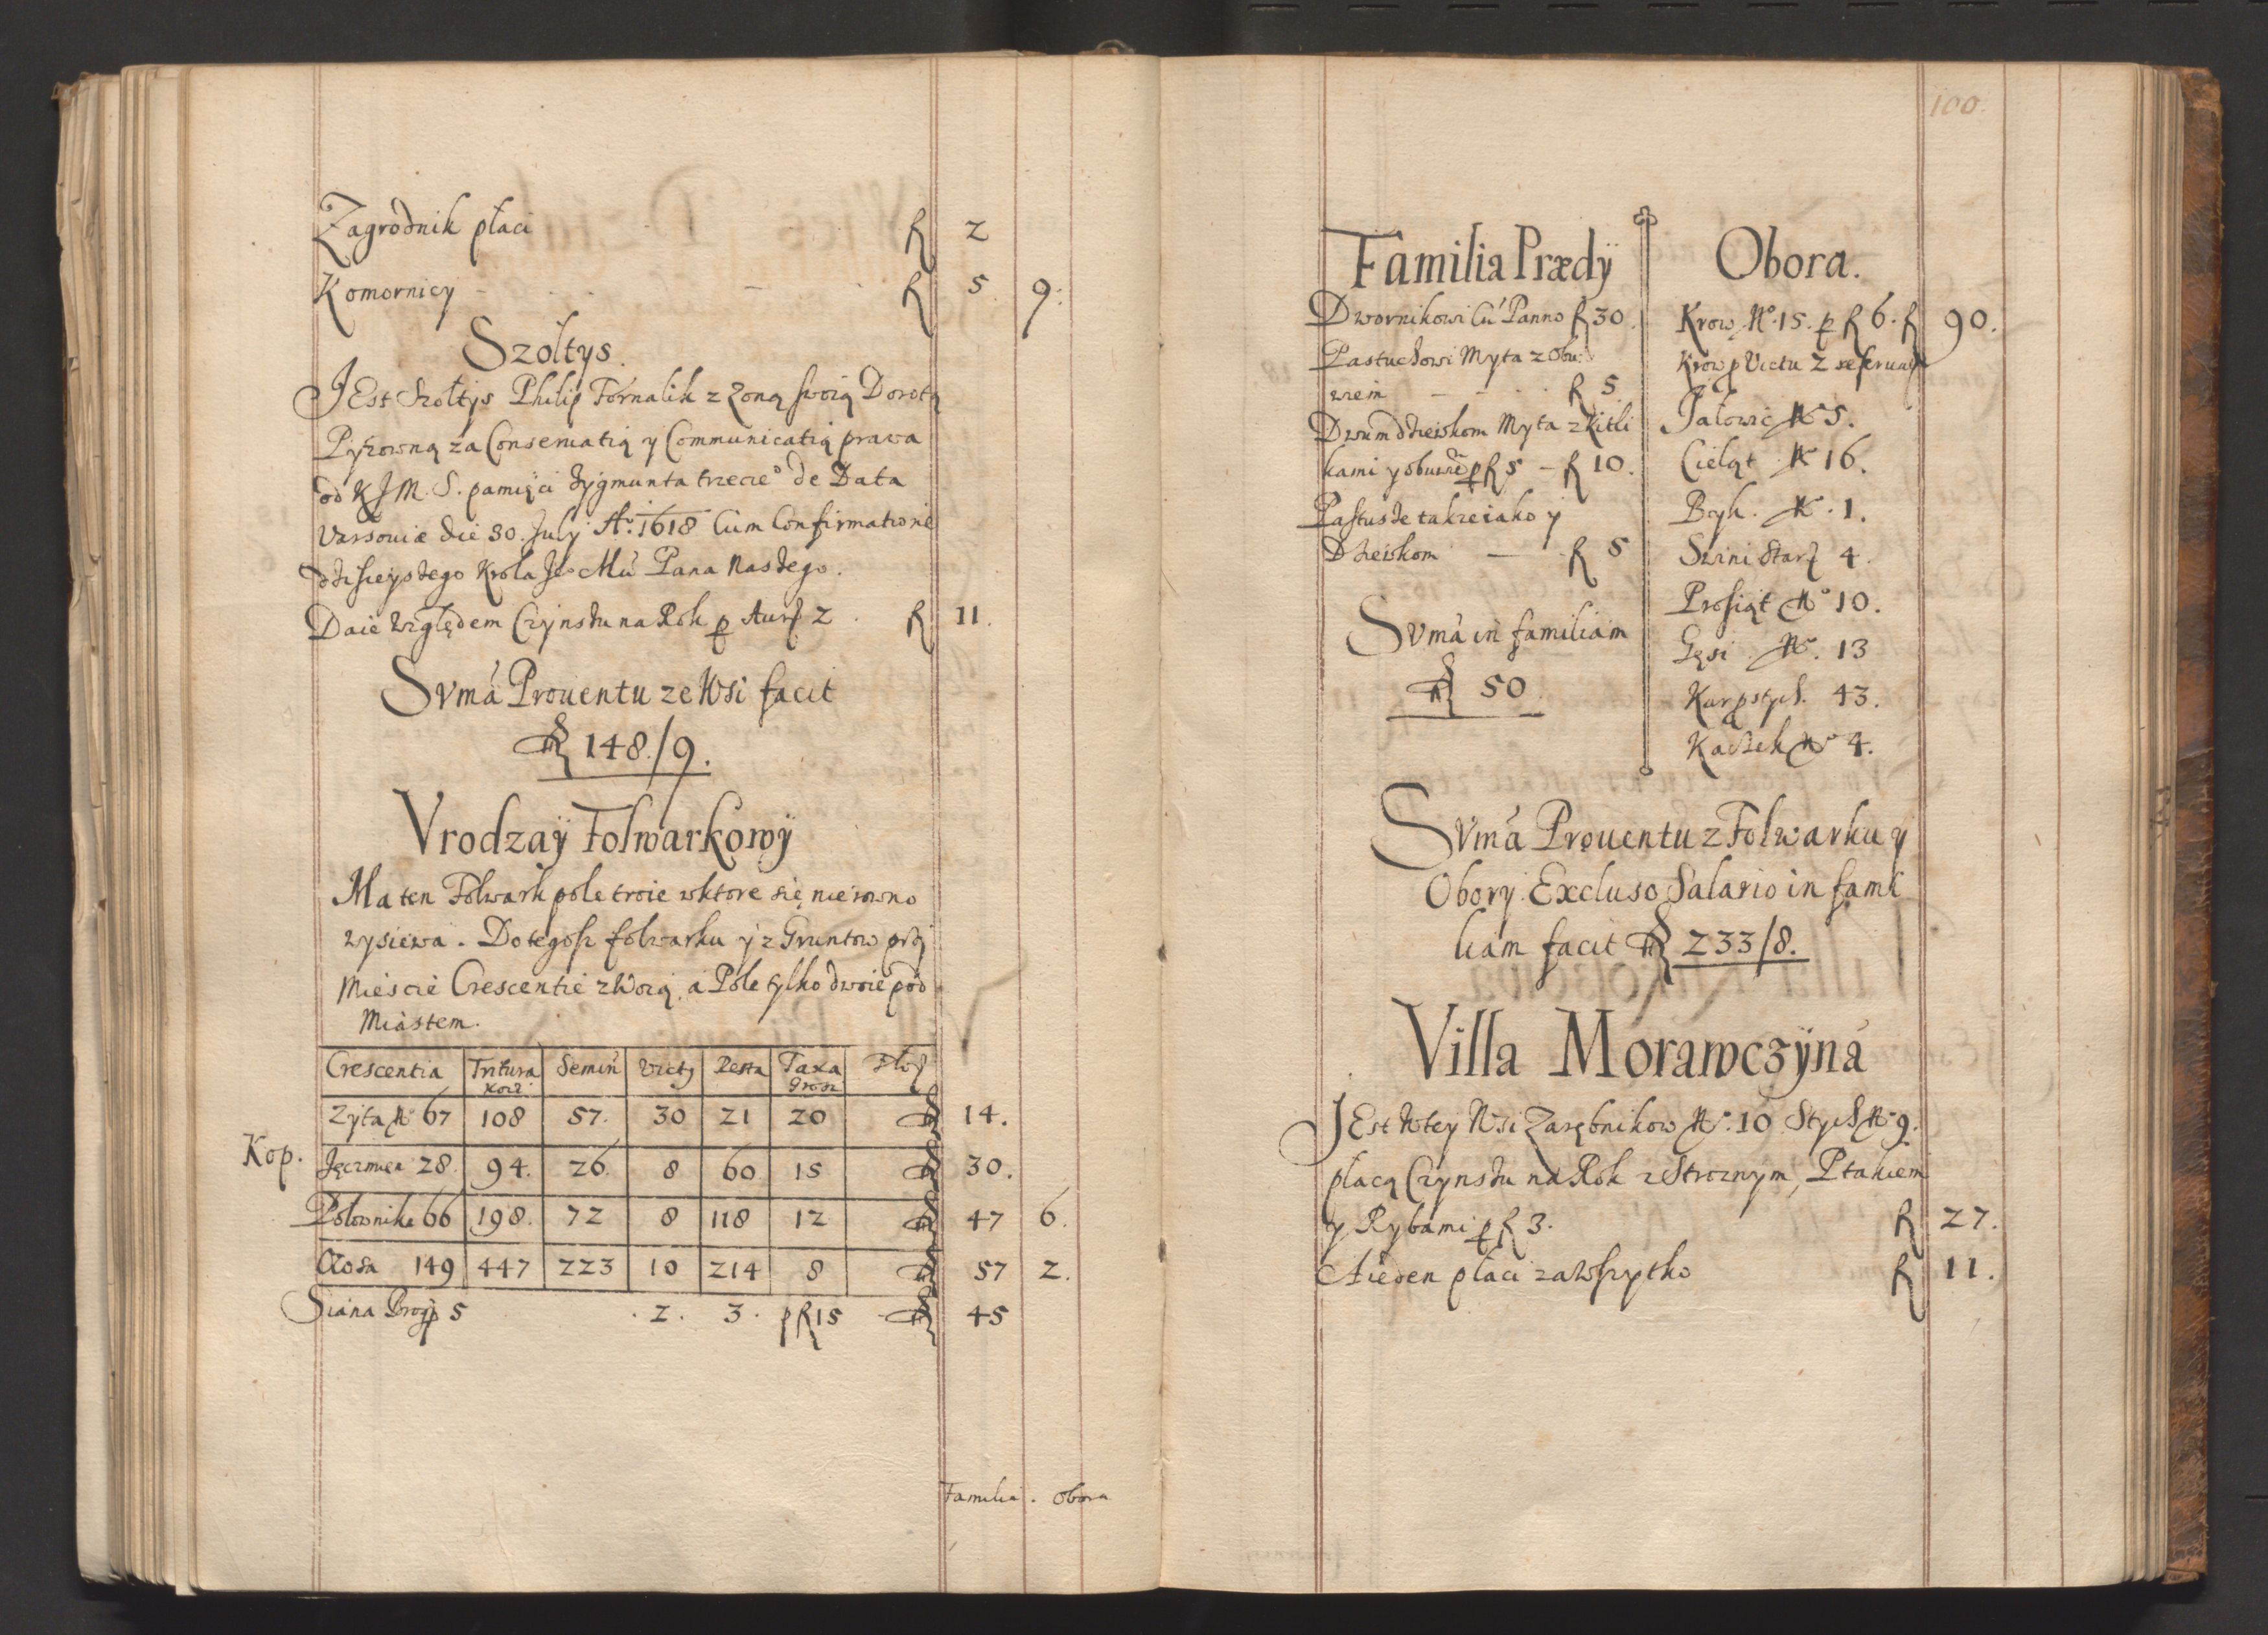 Zagrodnik płaci - - - - f 2
Komornicy - - - f 5 9:
Szołtys.
JEst Szołtys Philip Fornalik z zoną swoią Dorotą
Pyzowną za Conseruatią y Communicatią prawa
od KJM. S. pamięci Zygmunta trzecieo de Data
Varsouiæ die 30. July Ao. 1618 Cum Confirmatione
dzisieyszego Krola Jeo Mci Pana Naszego.
Daie względem Czynszu na Rok p Aurs 2 . f 11.
Svmá Prouentu ze Wsi facit
f 148./9.
Vrodzaÿ Folwarkowÿ
Ma ten Folwark pole troie wktore się nierowno
wysiewa. Do tegosz folwarku y z Gruntow przj
Mieście Crescentie zWozą, a Pole tylko dwoie pod
Miastem.
Crescentia Tritura Semiń Victy Resta Taxa Złoƒ
Korz Grosz
Zyta No 67 108 57. 30 21 20 f 14.
Kop. Jęczmien 28. 94. 26. 8 60 15 f 30.
Połownika 66 198. 72 8 118 12 f 47 6.
Owsa 149 447 223 10 214 8 f 57 2.
Siana Brog p 5 . 2. 3. p f 15 - f 45
Familia. Obora
100.
Familia Prædÿ
Dwornikowi Cú Panno f 30.
Pastuchowi Myta z Obu:
wiem - - - f 5
Dwum dzieiskom Myta z Kitli
kami y obuwiē p f 5 - f 10.
Pastusze takze iako y
Dzieiskom — f 5
Svmá in familiam
f 50
Obora.
Krow No. 15. p f 6. f 90.
Krow p Victu 2 reseruatȝ
Jałowic No 5.
Cieląt No 16.
Byk. No. 1.
Swini Starȝ 4.
Prosiąt No 10.
Gęsi No. 13
Kur pstych. 43.
Kaczek No 4.
Svmá Prouentu z Folwarku y
Obory Excluso Salario in fami
liam facit f 233/8.
Villa Morawczÿná
JEst W tey Wsi Zarębnikow No. 10 Stych No 9.
płacą Czynszu na Rok z Stroznym, Ptakiem
y Rybami p f 3. f 27.
A ieden płaci za Wszytko f 11.